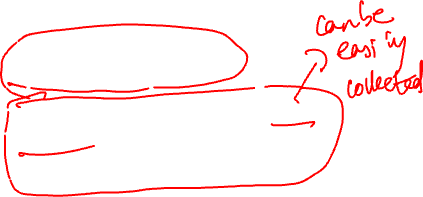 can be
easily
collected